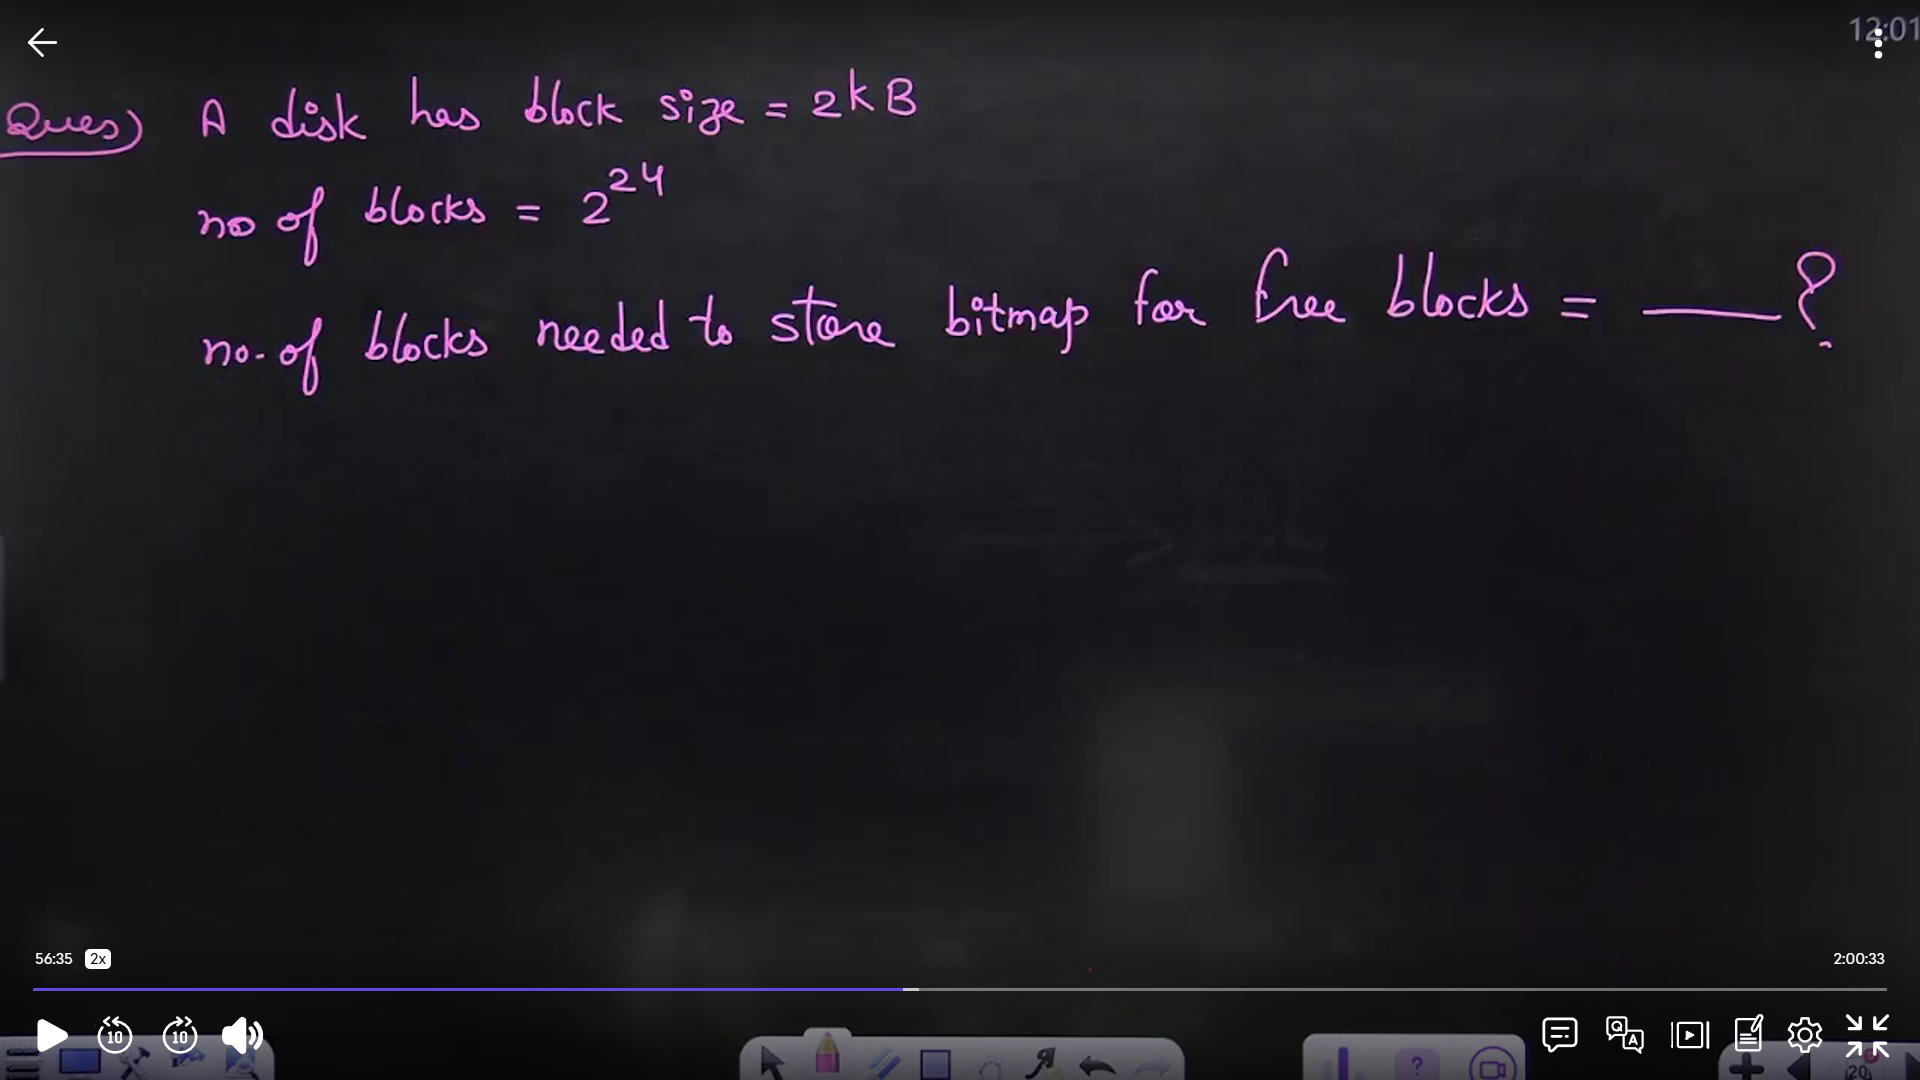 12:01
Ques) A disk has block size = 2kB
no of blocks = 2^24
no. of blocks needed to store bitmap for free blocks = ___?
56:35 2x 2:00:33
10 10
Q A
? 20